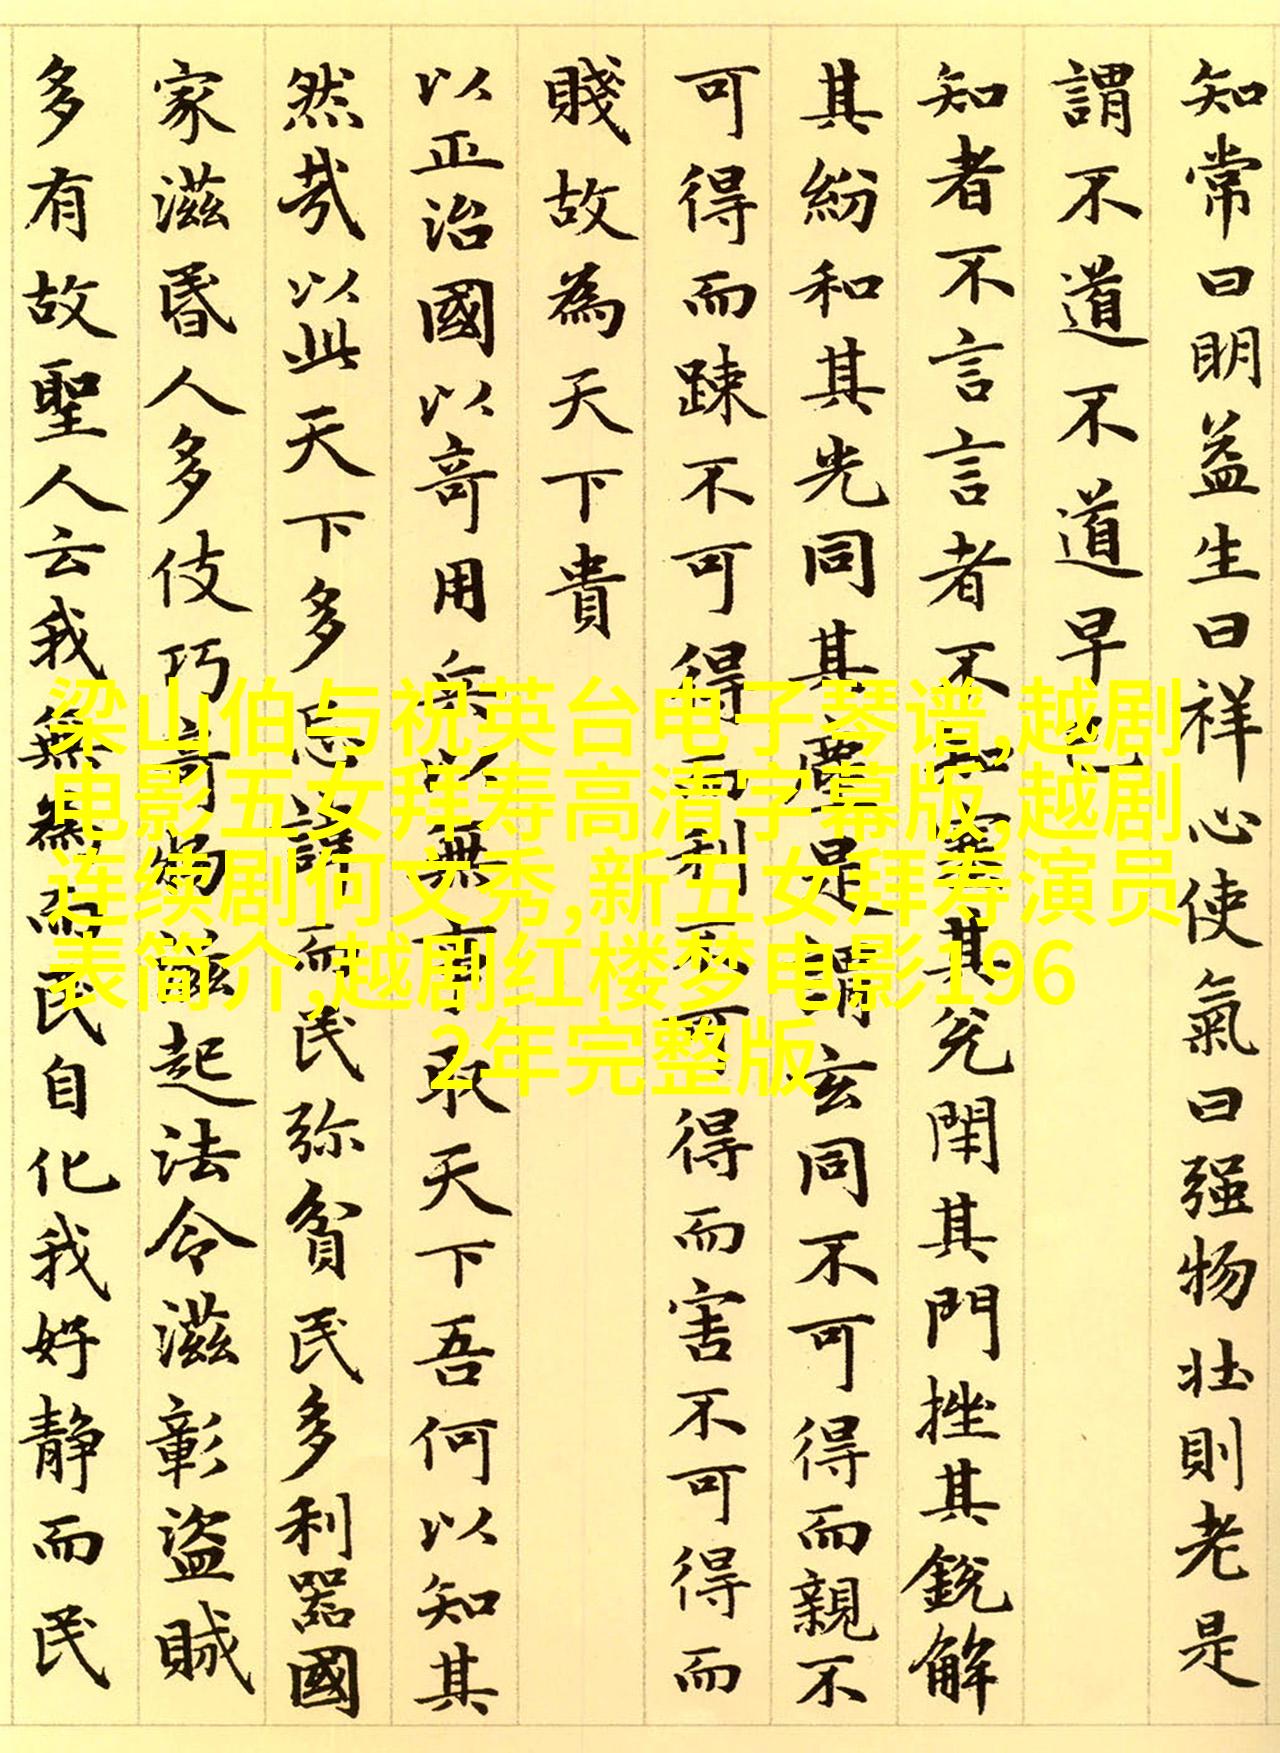 知常曰明益生曰祥心使氣曰强物壮則老是
謂不道不道早已
知者不言言者不知塞其兊閇其門挫其銳解
其紛和其光同其塵是謂玄同不可得而親不
可得而踈不可得而利不可得而害不可得而
賤故為天下貴
以正治國以竒用兵以無事取天下吾何以知其
然㢤以此天下多忌諱而民弥貧民多利器國
家滋昬人多伎巧竒物滋起法令滋彰盗賊
多有故聖人云我無為而民自化我好静而民
梁山伯与祝英台电子琴谱,越剧
电影五女拜寿高清字幕版,越剧
连续剧何文秀,新五女拜寿演员
表简介,越剧红楼梦电影196
2年完整版